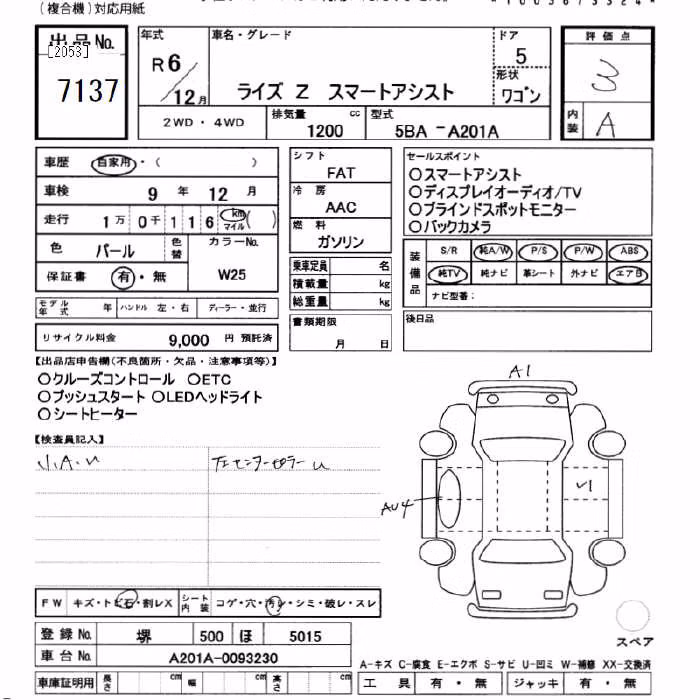 (複合機)対応用紙
出品No.
[2053]
7137
年式
R6
12月
車名・グレード
ライズ Z スマートアシスト
ドア
5
形状
ワゴン
評価点
3
内装
A
2WD・4WD
排気量
1200
cc
型式
5BA -A201A
車歴
自家用・( )
車検
9 年 12 月
走行
1万 0千 1 1 6 km マイル ( )
色
パール
色替
カラーNo.
W25
保証書
有・無
モデル年式
年
ハンドル 左・右
ディーラー・並行
リサイクル料金
9,000 円 預託済
シフト
FAT
冷房
AAC
燃料
ガソリン
乗車定員 名
積載量 kg
総重量 kg
書類期限
月 日
セールスポイント
○スマートアシスト
○ディスプレイオーディオ/TV
○ブラインドスポットモニター
○バックカメラ
装備品
S/R 純A/W P/S P/W ABS
純TV 純ナビ 革シート 外ナビ エアB
ナビ型番:
後日品
【出品店申告欄(不良箇所・欠品・注意事項等)】
○クルーズコントロール ○ETC
○プッシュスタート ○LEDヘッドライト
○シートヒーター
【検査員記入】
A1
AU4
FW キズ・トビ石・割レX
シート内装 コゲ・穴・汚レ・シミ・破レ・スレ
登録No. 堺 500 ほ 5015
車台No. A201A-0093230
車庫証明用 長さ cm 幅 cm 高さ cm
スペア
A-キズ C-腐食 E-エクボ S-サビ U-凹ミ W-補修 XX-交換済
工具 有・無 ジャッキ 有・無